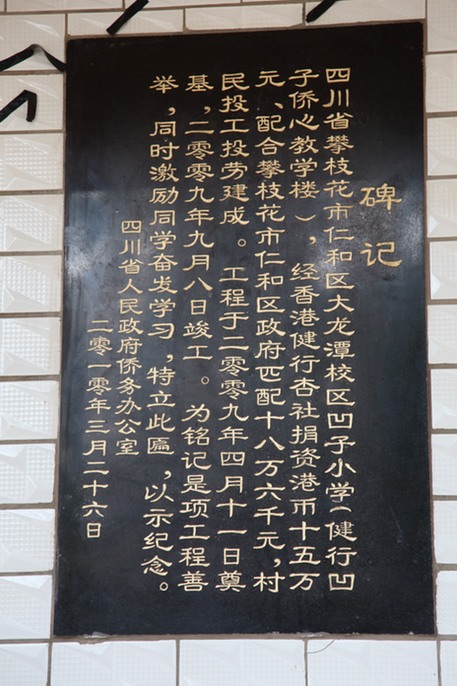 碑记
四川省攀枝花市仁和区大龙潭校区凹子小学（健行凹
子侨心教学楼），经香港健行杏社捐资港币十五万
元、配合攀枝花市仁和区政府匹配十八万六千元，村
民投工投劳建成。工程于二零零九年四月十一日奠
基，二零零九年九月八日竣工。为铭记是项工程善
举，同时激励同学奋发学习，特立此匾，以示纪念。
四川省人民政府侨务办公室
二零一零年三月二十六日